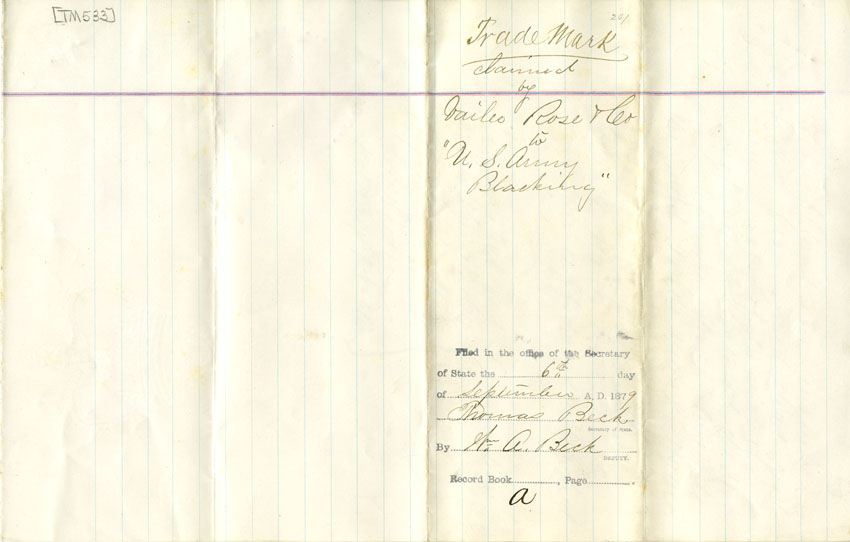 [TM533]
261
Trade Mark
claimed
by
Rose & Co
to
"U. S. Army
Blacking"
Filed in the office of the Secretary
of State the 6th day
of September A. D. 1879
Thomas Beck
Secretary of State.
By Wm A. Beck
DEPUTY.
Record Book , Page .
a